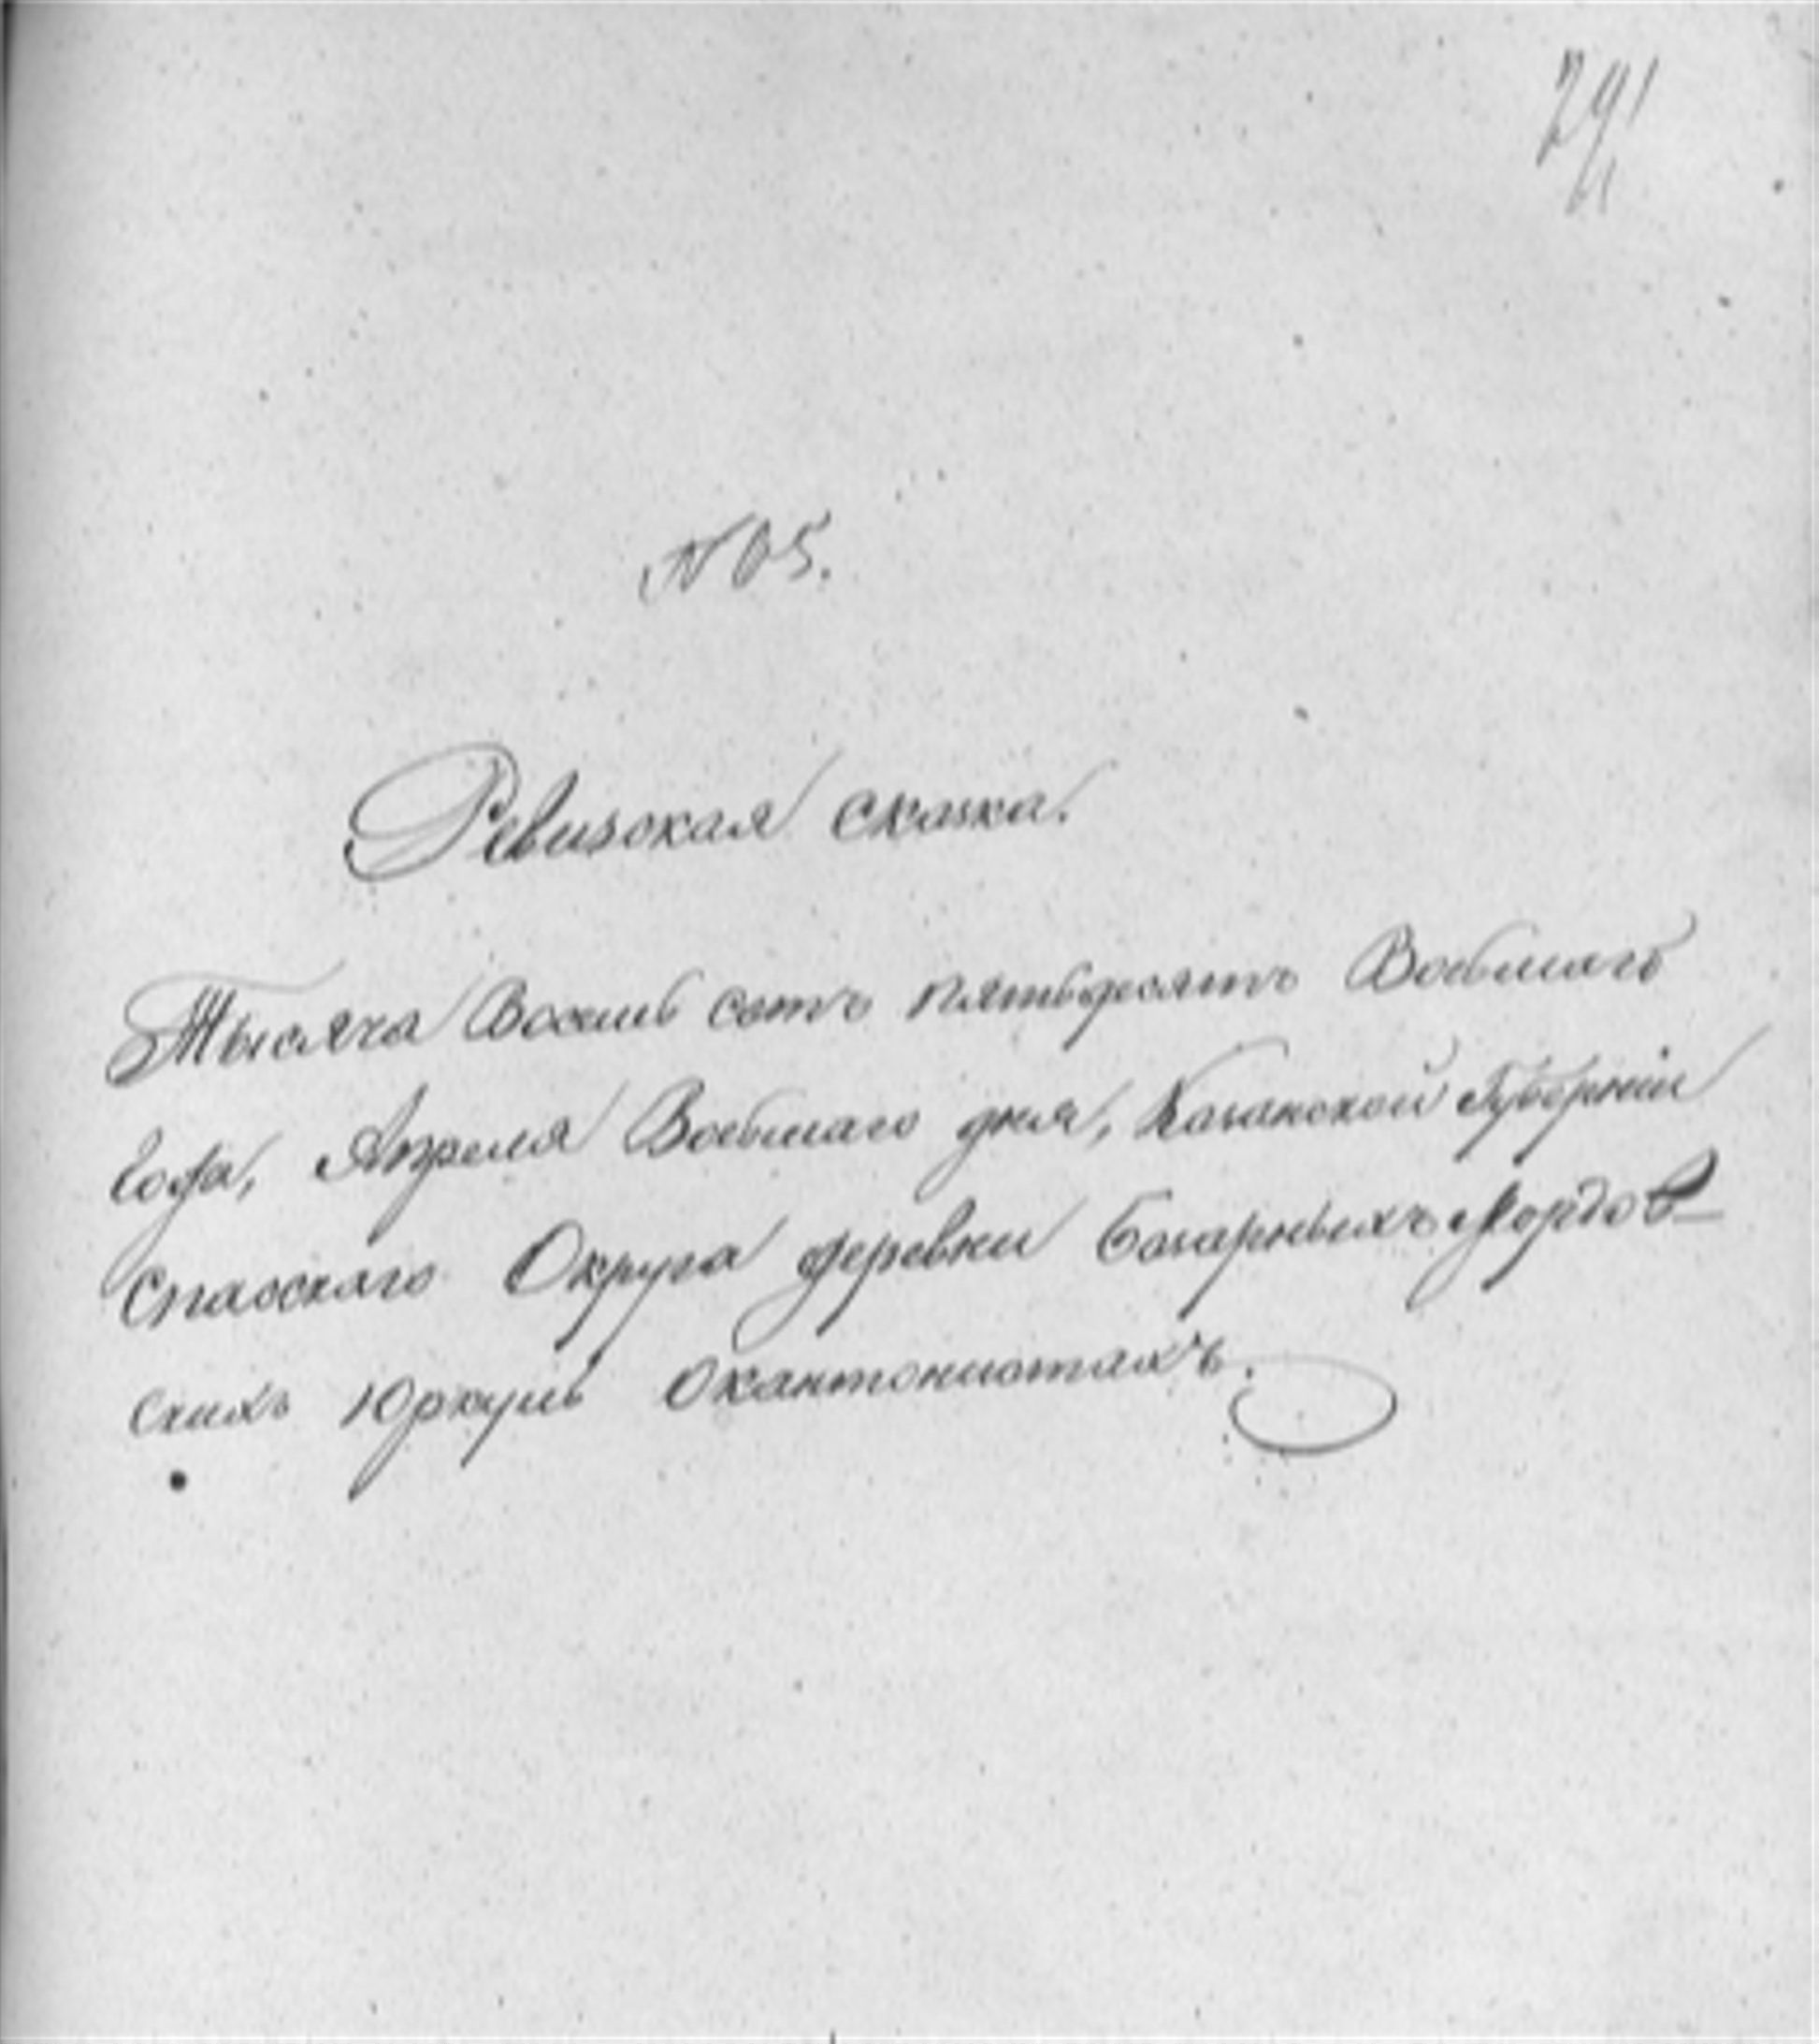 291
№ 65.
Ревизская сказка.
Тысяча Восемь сотъ пятьдесятъ Восьмаго
Года, Апреля Восьмаго дня, Казанской Губерніи
Спасскаго Округа деревки Базарныхъ Мордов-
скихъ Юркуль о кантонистахъ.